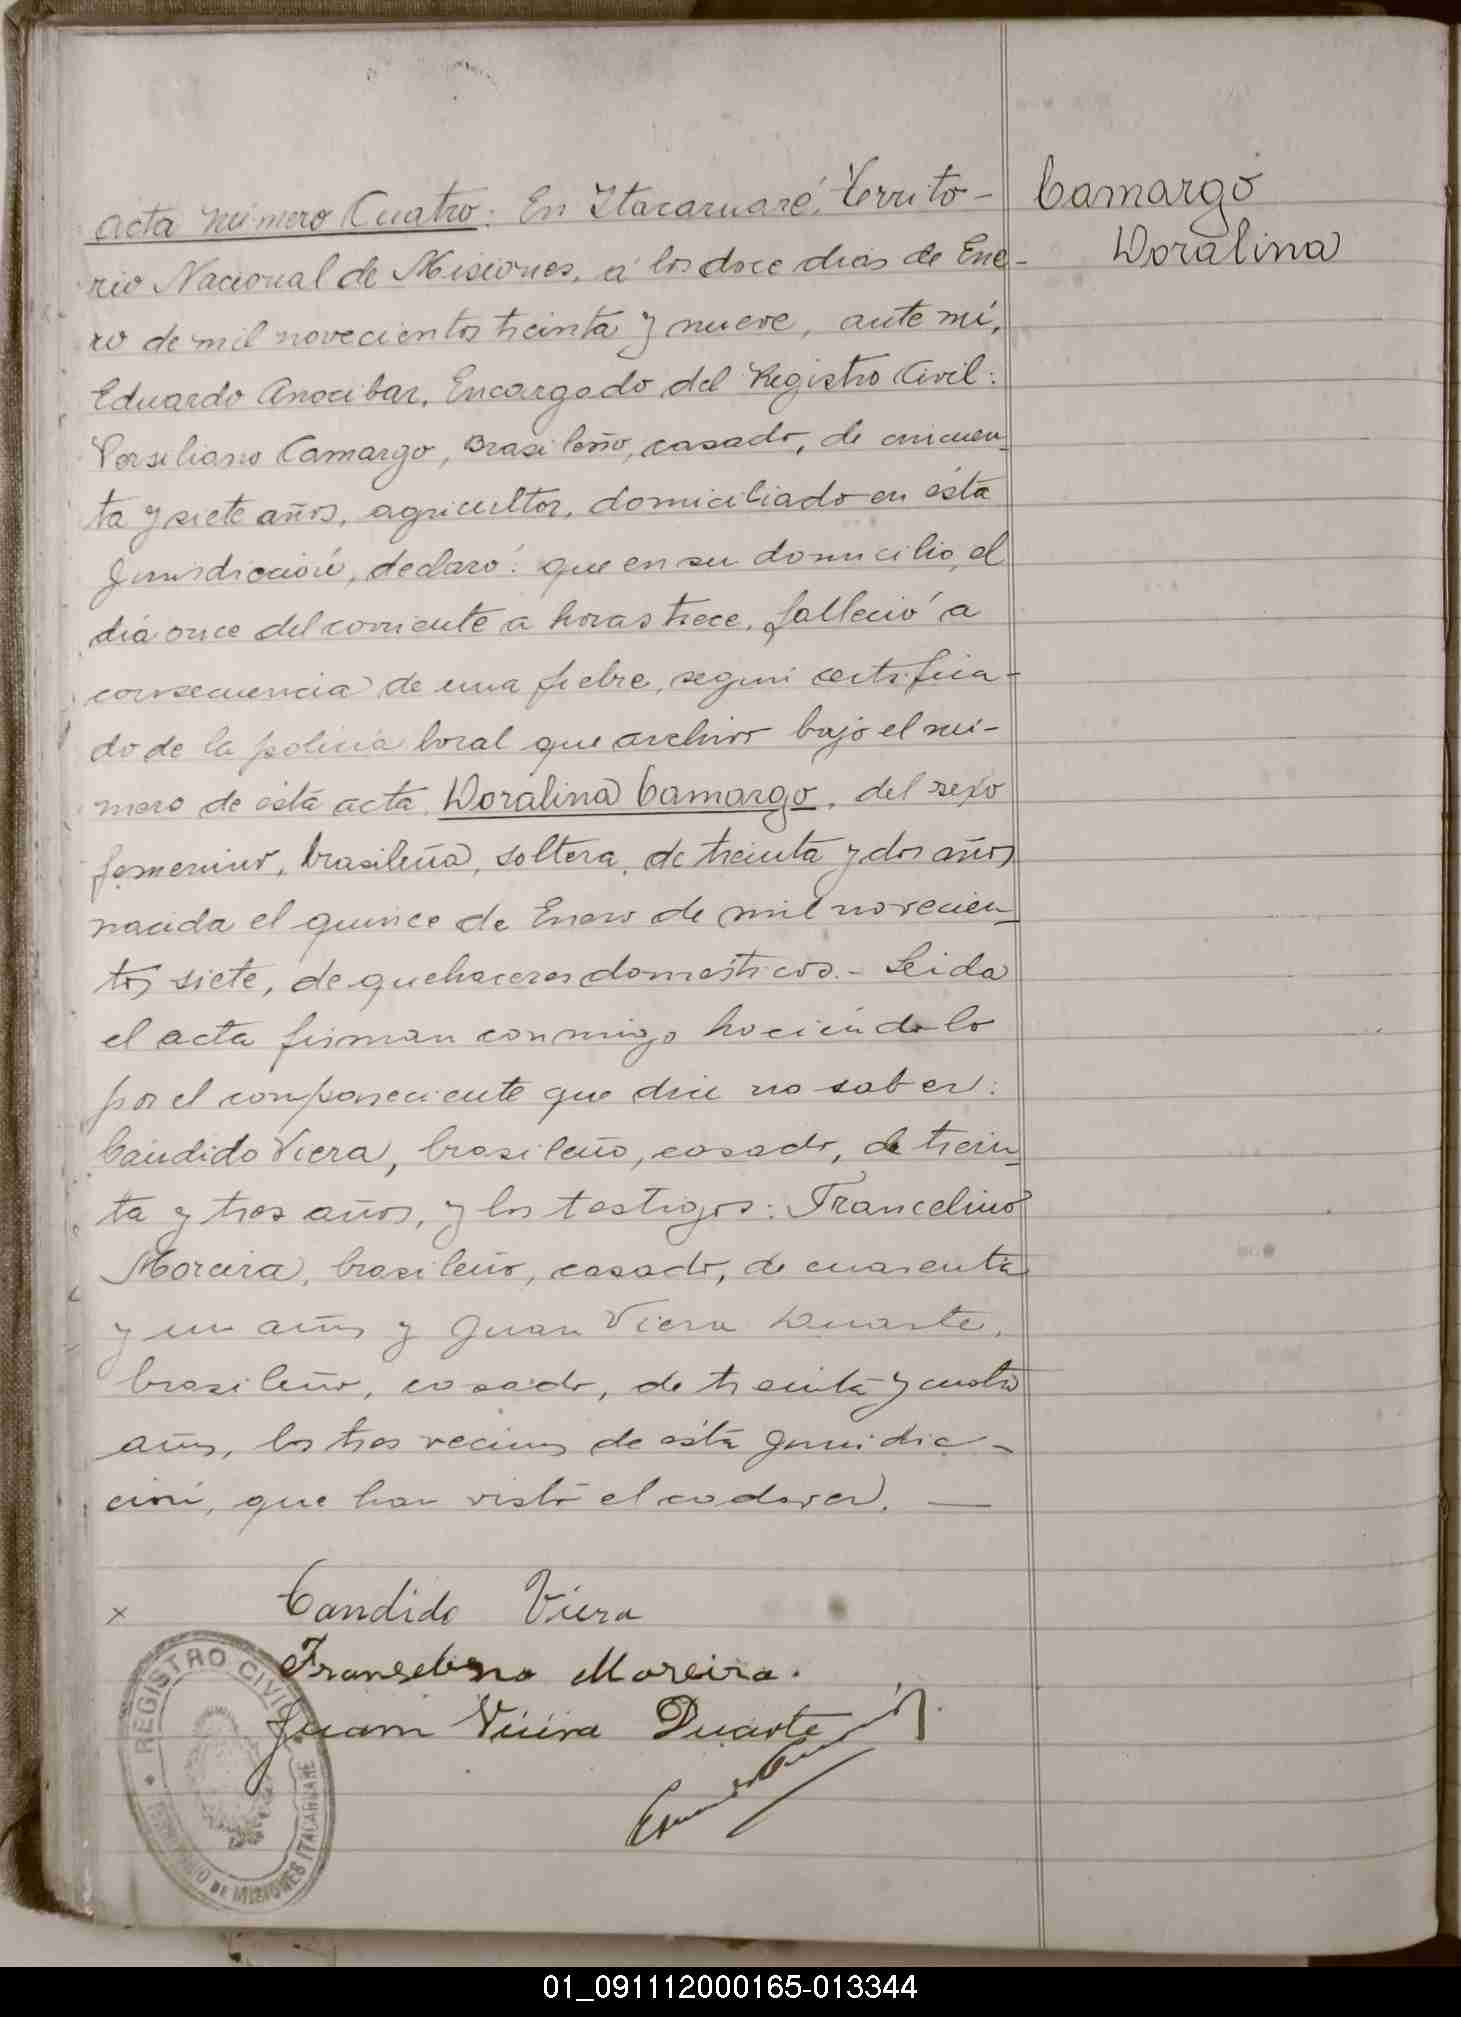 Acta número Cuatro: En Itacaruaré, Territo-
rio Nacional de Misiones, á los doce dias de Ene-
ro de mil novecientos treinta y nueve, ante mi,
Eduardo Anocibar, Encargado del Registro Civil:
Versiliano Camargo, Brasileño, casado, de cincuen-
ta y siete años, agricultor, domiciliado en ésta
Jurisdicción, declaró: que en su domicilio, el
día once del corriente a horas trece, falleció a
consecuencia de una fiebre, según certifica-
do de la policia local que archivo bajo el nú-
mero de ésta acta, Doralina Camargo, del sexo
femenino, brasileña, soltera, de treinta y dos años
nacida el quince de Enero de mil novecien-
tos siete, de quehaceres domésticos.- Leida
el acta firman conmigo haciéndolo
por el compareciente que dice no saber:
Cándido Viera, brasileño, casado, de trein-
ta y tres años, y los testigos: Francelino
Moreira, brasileño, casado, de cuarenta
y un años y Juan Viera Duarte,
brasileño, casado, de treinta y cuatro
años, los tres vecinos de ésta Jurisdic-
ción, que han visto el cadaver. —
Camargo
Doralina
x Candido Viera
Franselino Moreira.
Juam Vieira Duarte
REGISTRO CIVIL
TERRITORIO DE MISIONES ITACARUARE
01_091112000165-013344